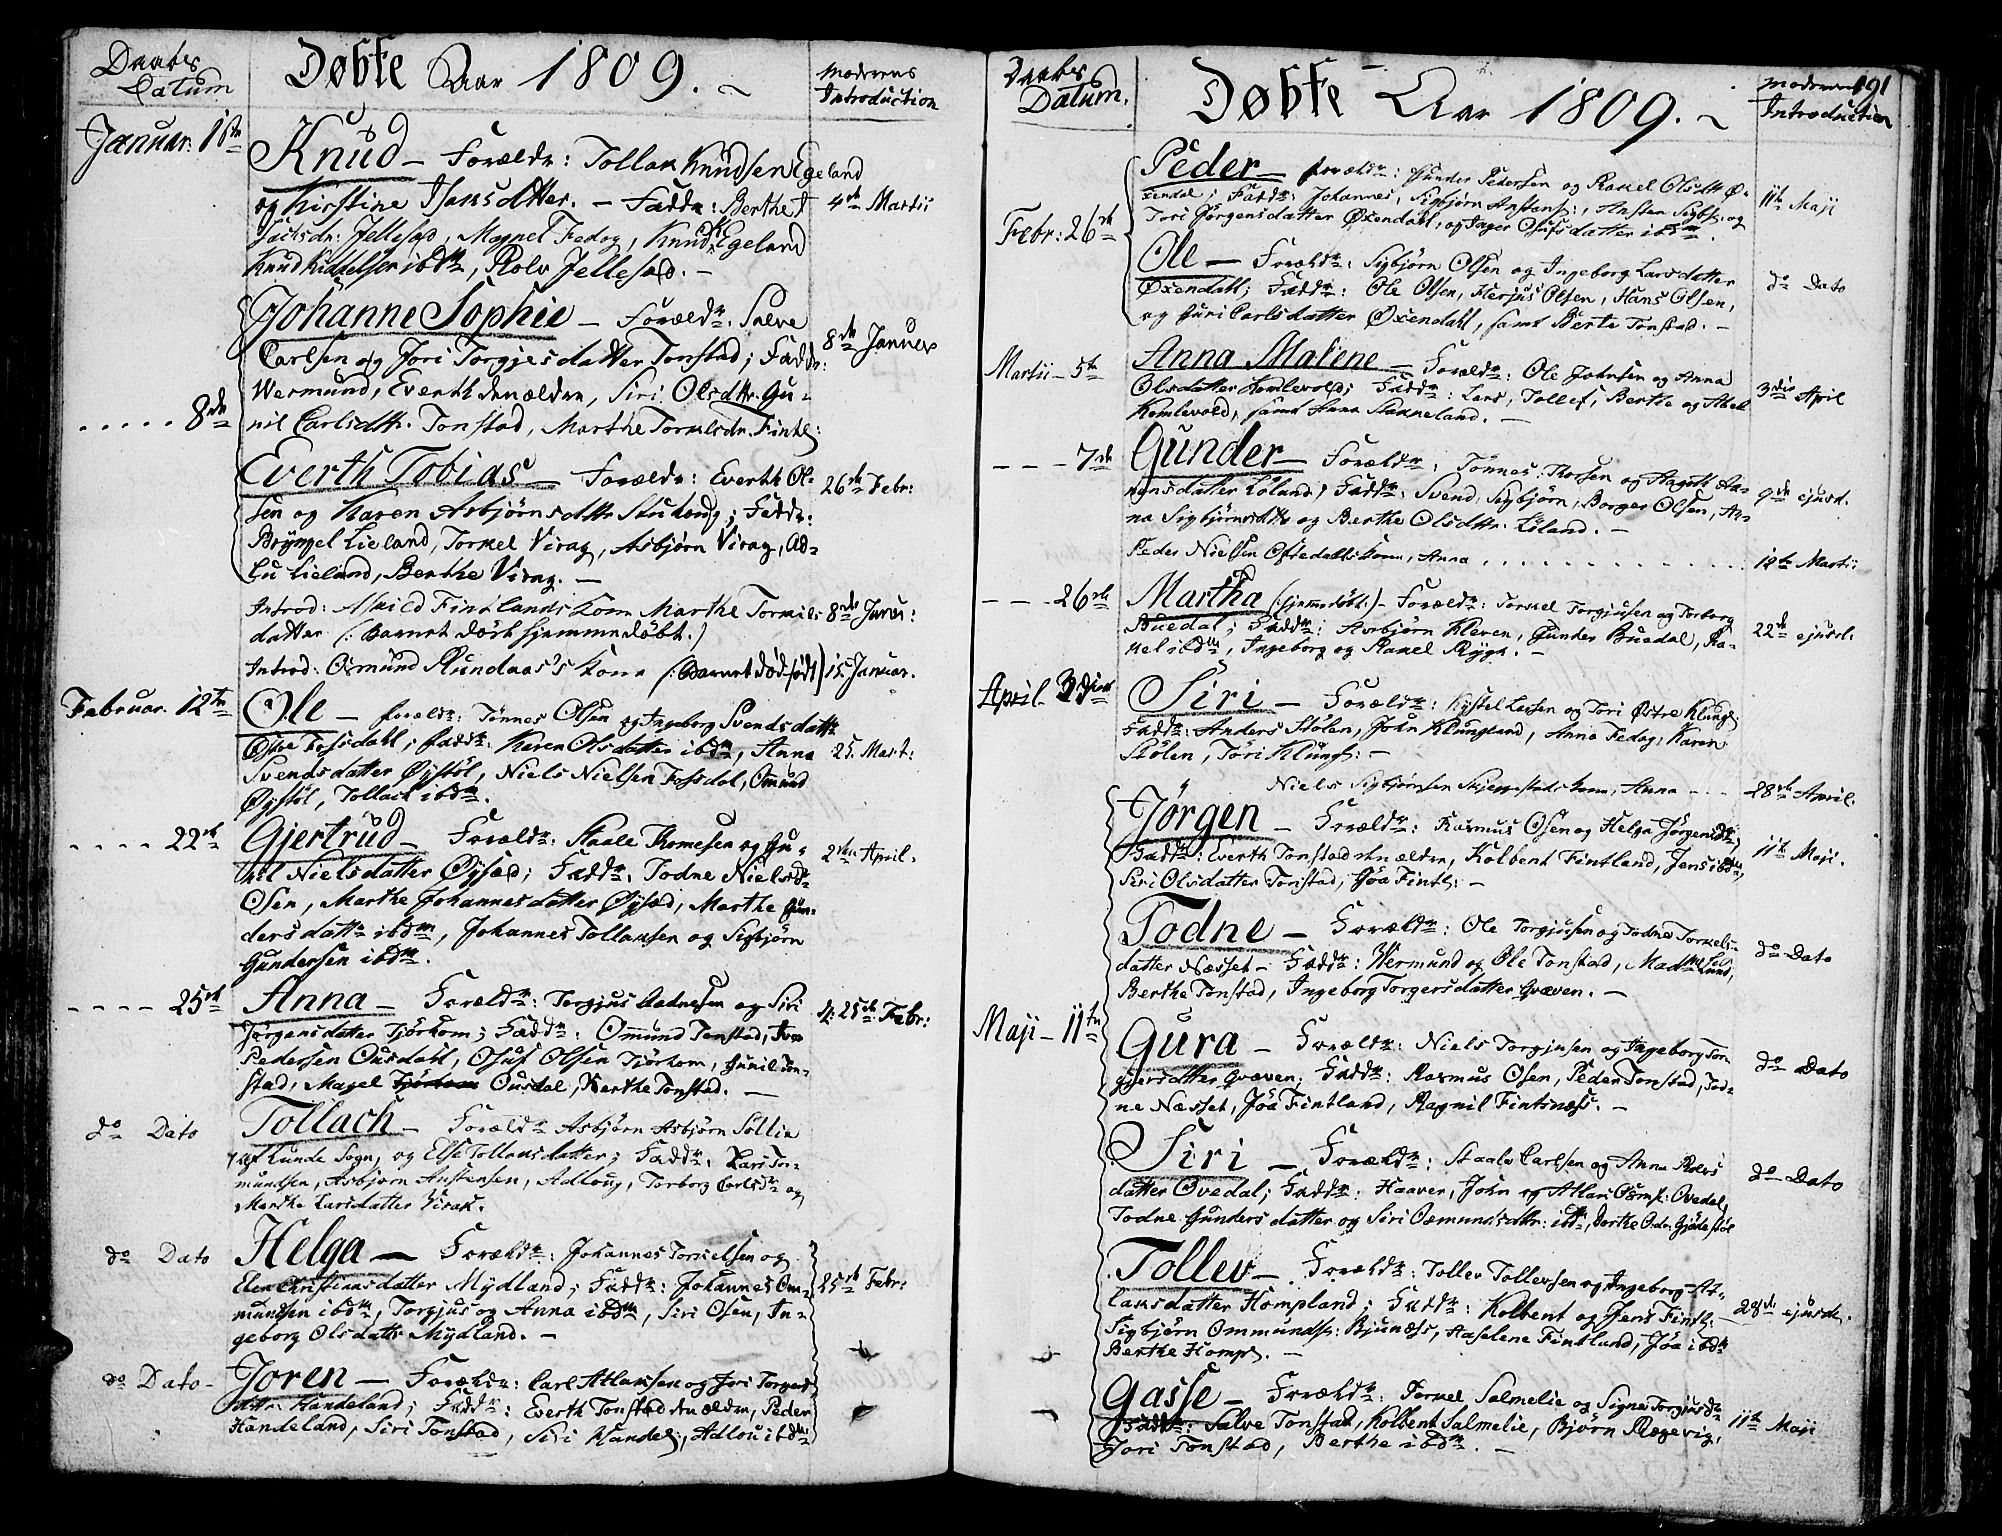 Daabs
Datum
Døbte Aar 1809.
Moderens
Introduction
Januar: 1ste
Knud — Forældr: Tollak Knudsen Egeland
og Kirstine Isaksdatter. — Faddr: Berthe I
Jellesæd, Magnel Fedog, Knud Egeland
Knud ibdm, Rolv Jellesæd. —
4de Martii
Johanne Sophie — Forældr: Salve
Carlsen og Jori Torgjesdatter Tonstad; Faddr:
8de Januar
Wermund, Everth den ældre, Siri Olsdttr. Gu-
. . . . . 8de
nil Carlsdttr. Tonstad, Marthe Torkelsdr. Fintl:
Everth Tobias — Forældr: Everth Ol-
26de Febr:
sen og Karen Asbjørnsdttr ; Faddr:
Bryngel Lieland, Torkel Virag, Asbjørn Virag, Ad-
lu Lieland, Berthe Virag. —
Introd: Finslands Kone Marthe Torkils-
8de Januar:
datter (: Barnet død hjemmedøbt.)
Introd: Osmund Kone (: Barnet dødfødt)
15 Januar.
Februar. 12te
Ole — Forældr: Tønnes Olsen og Ingeborg Svendsdattr
Fossdahl; Faddr: Karen Olsdatter ibdm, Anna
25. Mart:
Svendsdatter Øystøl, Niels Nielsen Fossdal, Omund
Øystøl, Tollak ibdm.
- - - - 22de
Gjertrud — Forældr: Staale Thomesen og Gu-
2den April.
nil Nielsdatter Øysæd; Faddr: Todne Nielsdr
Osen, Marthe Johannesdatter Øysæd, Marthe Gun-
dersdattr ibdm, Johannes Tollaksen og Sigbjørn
Gundersen ibdm.
- - - - 25de
Anna — Forældr: Torgjus Aadnesen og Siri
25de Febr:
Jørgensdatter Tjørhom; Faddr: Ommund Tonstad,
Pedersen Ousdahl, Osuf Olsen Tjørhom, Gunil Ton-
stad, Magel Ousdal, Berthe Tonstad. —
do Dato
Tollach — Forældr Asbjørn Asbjørn Sollie
af Lunde Sogn, og Else Tollaksdatter; Faddr: Lars Tor-
mundsen, Asbjørn Austensen, Adloug, Torborg Carlsdr og
Marthe Larsdatter Virak.
do Dato
Helga — Forældr: Johannes Torkelsen og
Elen Christiansdatter Mydland; Faddr: Johannes Om-
25de Febr:
mundsen ibdm, Torgjus og Anna ibdm, Siri Osen, In-
geborg Olsdattr Mydland. —
do Dato -
Joren — Forældr: Carl Atlaksen og Jori Torges
dttr. Handeland; Faddr: Everth Tonstad den ældre, Peder
Handeland, Siri Tonstad, Siri Handel:, Adlou ibdm:
Daabs
Datum.
Døbte Aar 1809.
191
Moderens
Introduction
Peder — Forældr: Gunder Pedersen og Rakel Olsdttr Ø-
xendal; Faddr: Johannes, Sigbjørn Anstens:, Ansten Sigbs. og
11te Maji
Febr: 26de
Tori Jørgensdatter Øxendahl, og Inger Osufsdatter ibdm.
Ole — Forældr: Sigbjørn Olsen og Ingeborg Larsdatter
Øxendahl; Faddr: Ole Olsen, Herjus Olsen, Hans Olsen,
do Dato
og Guri Carlsdatter Øxendahl, samt Berte Tonstad. —
Martii - 5te
Anna Malene — Forældr: Ole Johnsen og Anna
Olsdatter Homlevold; Faddr: Lars, Tollef, Berthe og Abel
3die April
Homlevold, samt Anna Stakkeland. —
- - - 7de
Gunder — Forældr: Tønnes Thorsen og Aagot Aa-
nensdatter Løland; Faddr: Svend Sigbjørn, Borger Olsen, An-
9de ejusd.
na Sigbjørnsdttr og Berthe Olsdttr Løland. —
Peder Nielsen Ousdalls Kone, Anna . . . . . . . . . .
12te Martii
- - - 26de
Martha (: hjemmedøbt:) — Forældr: Torkel Torgjusen og Torborg
Buedal; Faddr: Asbjørn Kleven, Gunder Buedal, Ra-
22de ejusd.
kel ibdm, Ingeborg og Rakel Rygh. —
April 3die
Siri — Forældr: Kystel Larsen og Tori Østre Klungl:
Faddr: Anders Stølen, John Klungland, Anna Fedog, Karen
Stølen, Tori Klungl: —
Niels Sigbjørnsen Skjeggestads Kone, Anna - - -
28de April.
Jørgen — Forældr: Rasmus Osen og Helga Jørgensdr,
Faddr: Everth Tonstad den ældre, Kolbent Fintland, Jens ibdm,
11te Maji.
Siri Olsdatter Tonstad, Jøa Fintl: —
Todne — Forældr: Ole Torgjusen og Todne Torkels-
datter Næsset — Faddr: Wermund og Ole Tonstad, Mad Lund,
do Dato
Berthe Tonstad, Ingeborg Torgersdatter Græven. —
Maji - 11te
Gura — Forældr: Niels Torgjusen og Ingeborg Tor-
gjersdatter Græven; Faddr: Rasmus Osen, Peder Tonstad, Tod-
do Dato
ne Næsset, Jøa Fintland, Ragnil Fintsnæss. —
Siri — Forældr: Staale Carlsen og Anna Peders
datter Ovedal; Faddr: Haaver, John og Atlak Osmds: Ovedal,
do Dato
Todne Gundersdatter og Siri Osmundsdttr: ibdm, Berthe Gjødestøl
Tollev — Forældr: Tollev Tollevsen og Ingeborg At-
laksdatter Hompland; Faddr: Kolbent og Jens Fintl:
28de ejusd.
Sigbjørn Ommundsn: Bjunæss, Aaselene Fintland, Jøa ibdm
Berthe Hompl. —
Gasse — Forældr: Torkel Salmelie og Signe Torgjusdr
Faddr: Salve Tonstad, Kolbent Salmelie, Bjørn Rægevig,
11te Maji
Jori Tonstad, Berthe ibdm. —